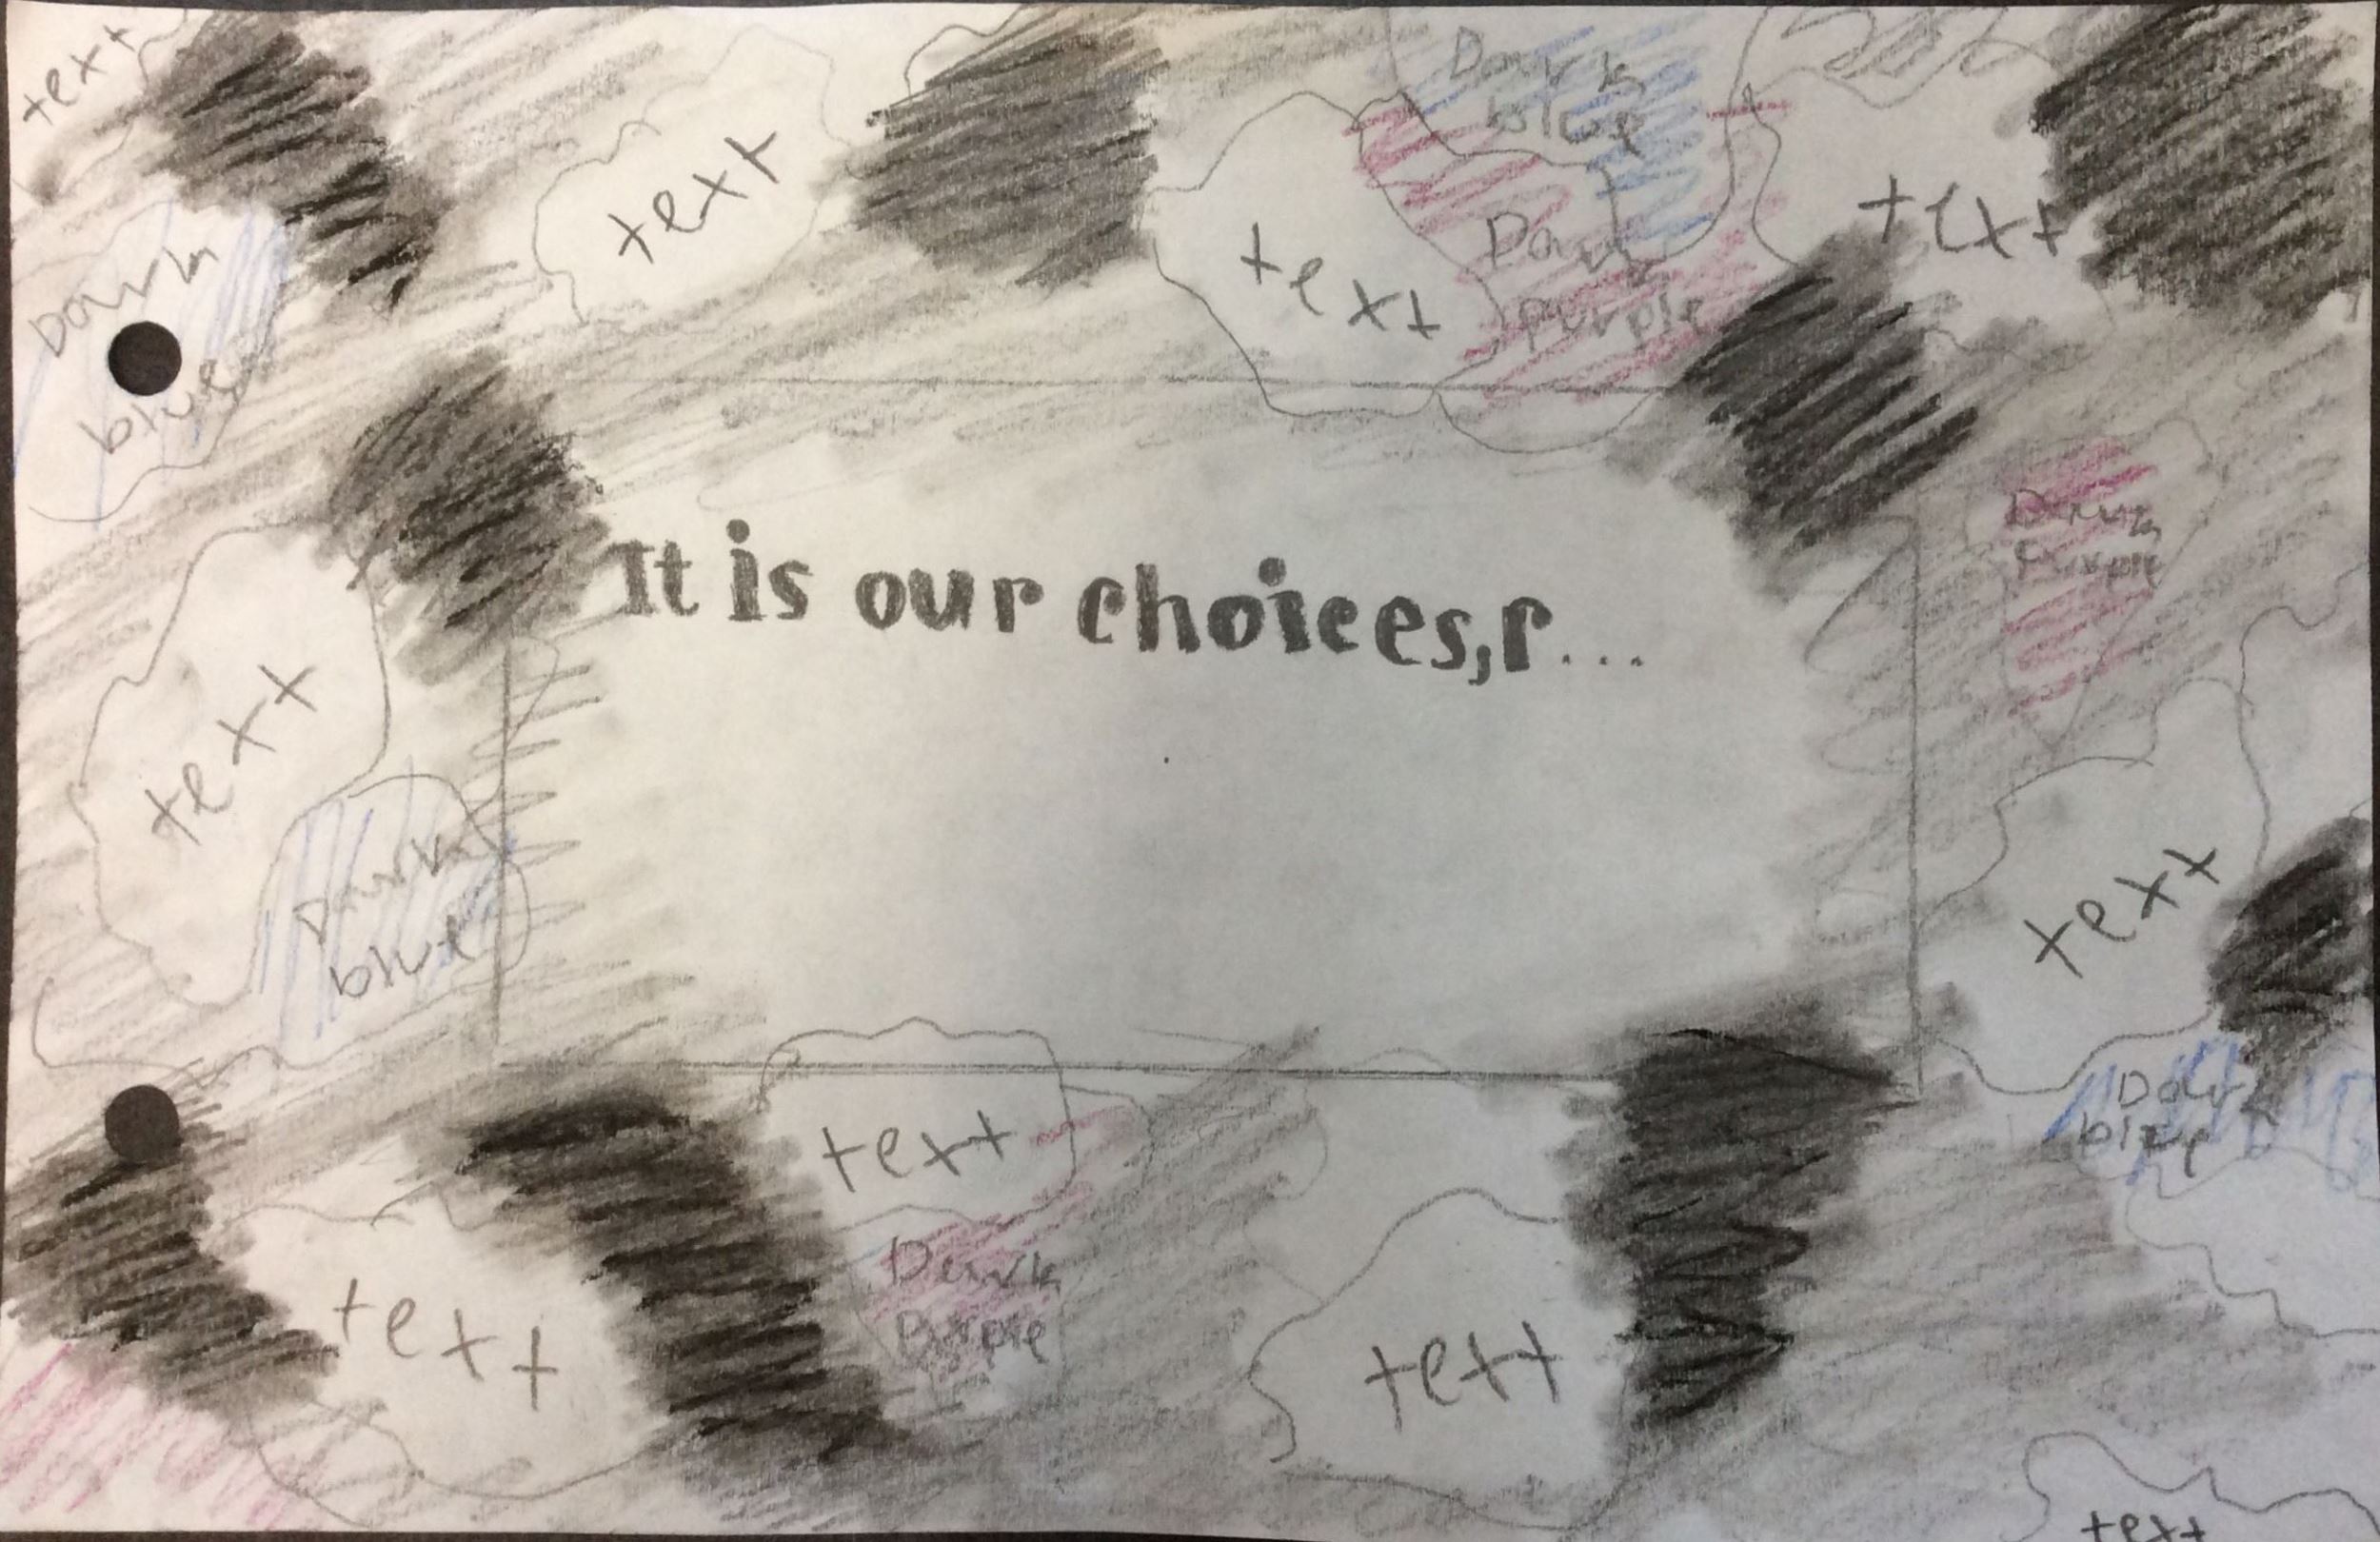 text
Dark
blue
text
text
Dark
blue
Dark
purple
text
It is our choices,r...
Dark
Purple
text
Dark
blue
text
text
Dark
blue
text
Dark
Purple
text
text